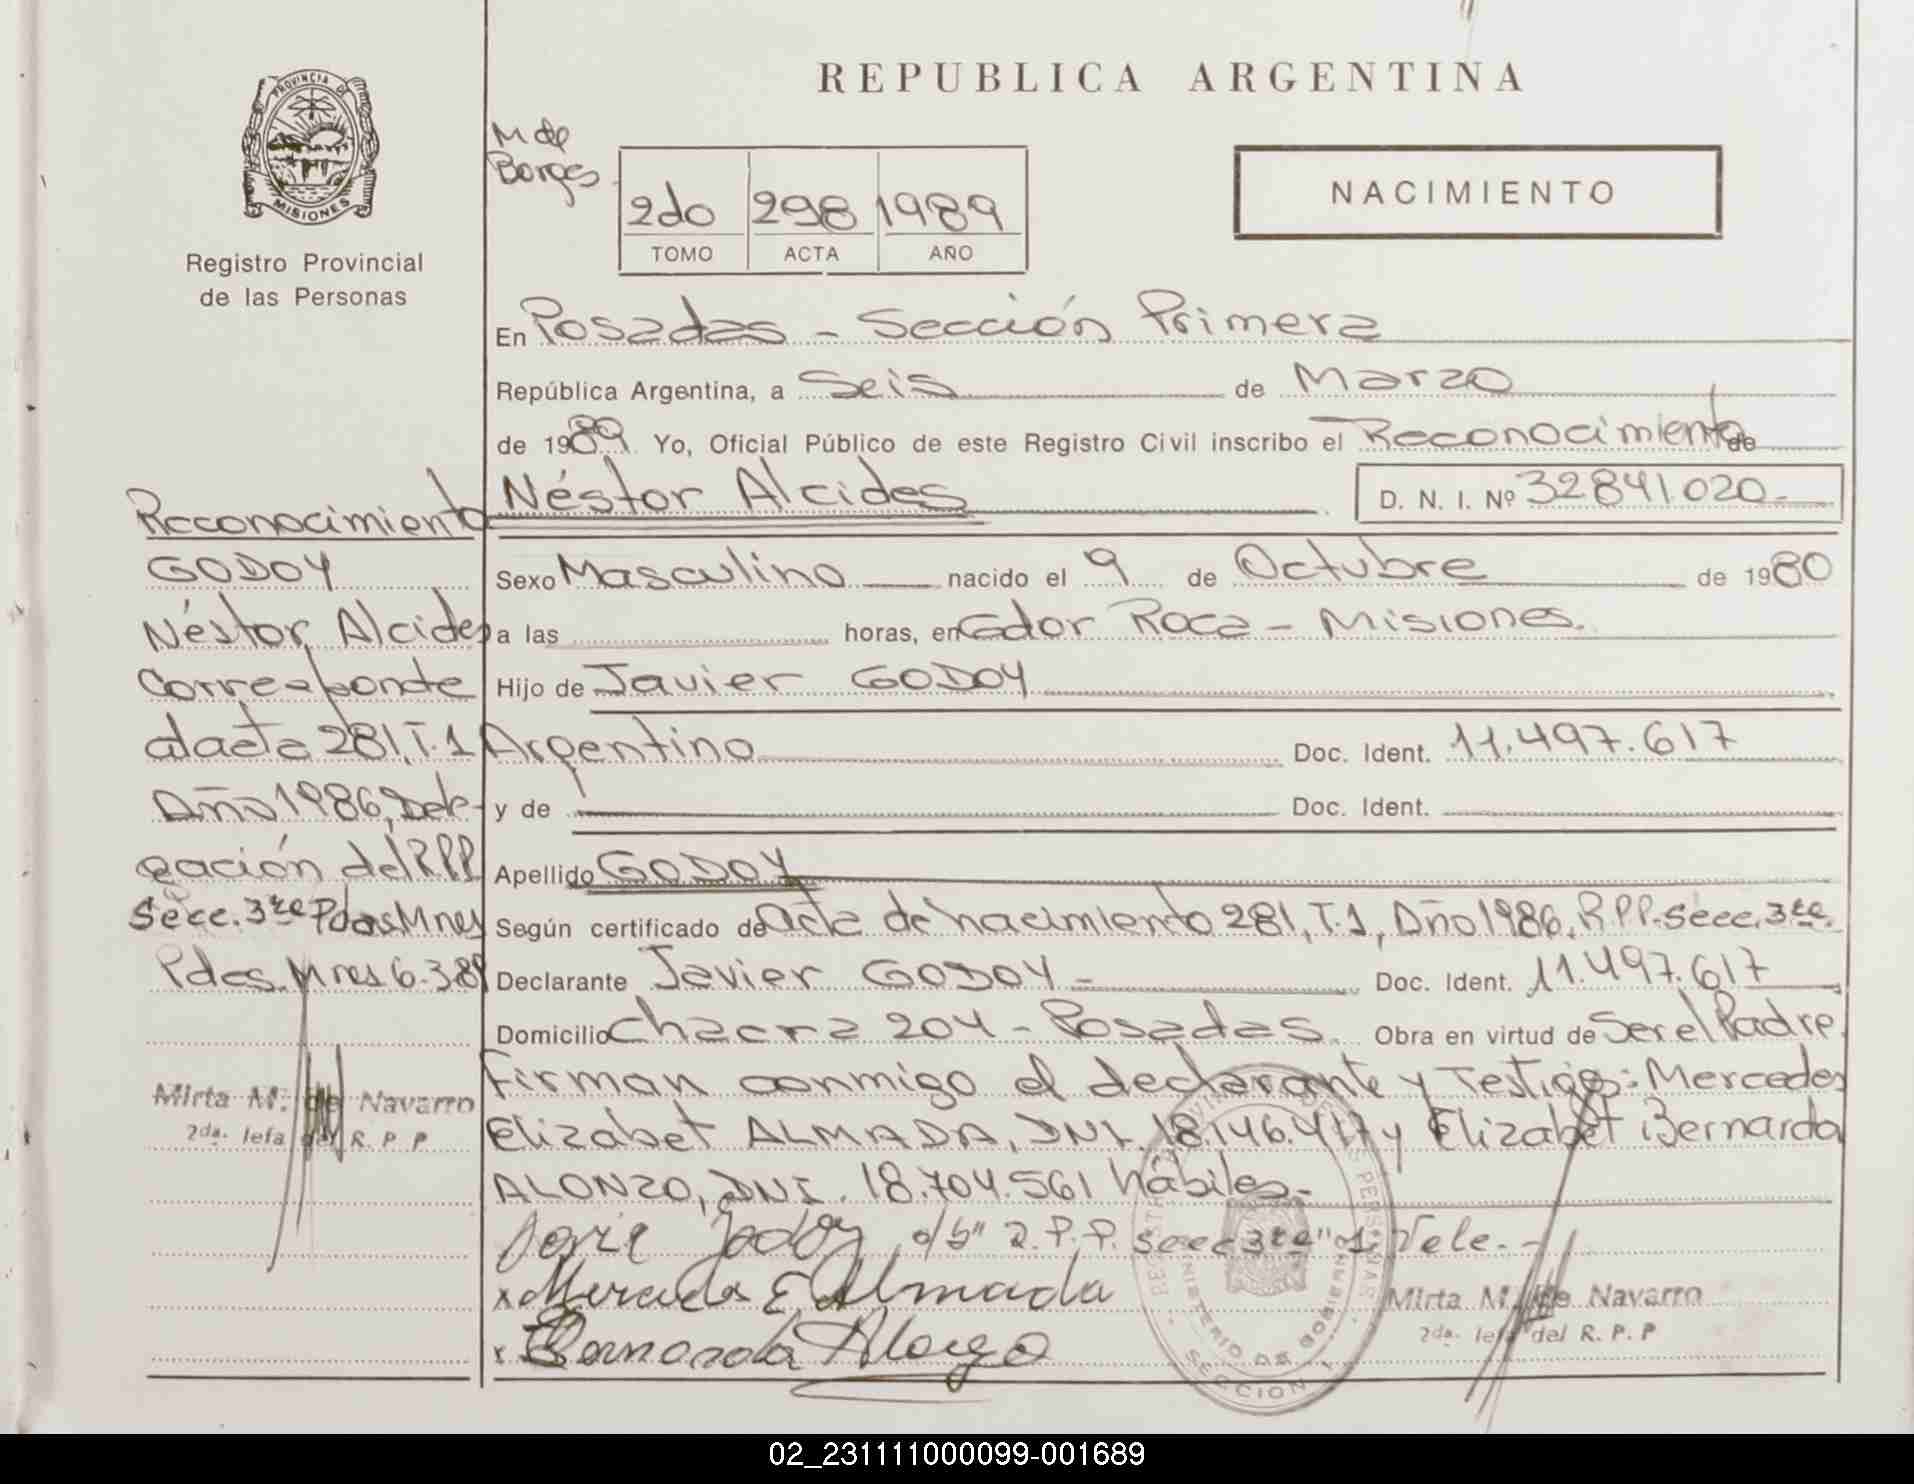 REPUBLICA ARGENTINA
PROVINCIA DE
MISIONES
Registro Provincial
de las Personas
M de
Borges
2do 298 1989
TOMO ACTA AÑO
NACIMIENTO
En Posadas - Sección Primera
República Argentina, a Seis de Marzo
de 1989. Yo, Oficial Público de este Registro Civil inscribo el Reconocimiento de
Néstor Alcides D. N. I. Nº 32841.020-
Sexo Masculino nacido el 9 de Octubre de 1980
a las horas, en Gdor Roca - Misiones.
Hijo de Javier GODOY
Argentino Doc. Ident. 11.497.617
y de Doc. Ident.
Apellido GODOY
Según certificado de Acta de nacimiento 281, T.1, Año 1986, R.P.P. Secc. 3ra.
Declarante Javier GODOY - Doc. Ident. 11.497.617
Domicilio Chacra 204 - Posadas. Obra en virtud de Ser el Padre.
Firman conmigo el declarante y Testigos: Mercedes
Elizabet ALMADA, DNI. 18.146.417 y Elizabet Bernarda
ALONZO, DNI. 18.704.561 hábiles.-
Godoy R.P.P. Secc 3ra "1 Vale.-
x E Almada
x Bernarda
Mirta M. de Navarro
2da. Jefa del R. P. P
Reconocimiento
GODOY
Néstor Alcides
Corresponde
al acta 281, T.1
Año 1986, Dele-
gación del RPP
Secc. 3ra Pdas Mnes
Pdas. Mnes 6-3-89
Mirta M. de Navarro
2da. Jefa del R. P. P
MINISTERIO DE GOBIERNO
SECCION 1
02_231111000099-001689